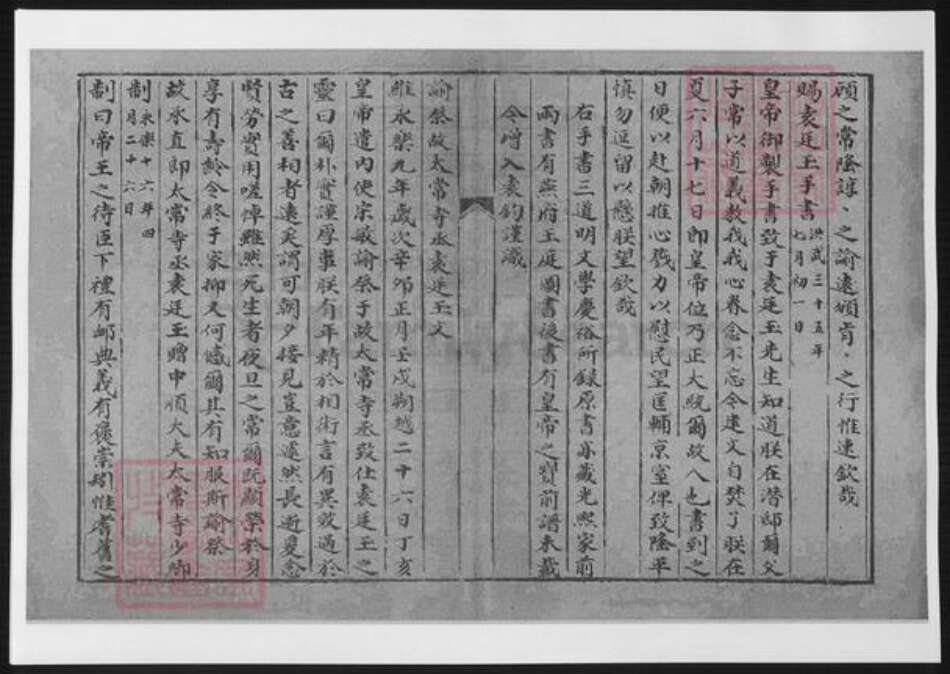 顧之常隆諄、之諭遠頒肯、之行惟速欽哉
賜袁廷玉手書 洪武三十五年七月初一日
皇帝御製手書致于袁廷玉先生知道朕在潛邸爾父
子常以道義教我我心眷念不忘今建文自焚了朕在
夏六月十七日即皇帝位乃正大統爾故人也書到之
日便以赴朝推心戮力以慰民望匡輔京室俾致隆平
慎勿逗留以懸朕望欽哉
右手書三道明文學慶俗所録原書亦藏光熙家前
兩書有燕府王庭圖書後書有皇帝之寶前譜未載
今增入袁鈞謹識
諭祭故太常寺丞袁廷玉文
維永樂九年歲次辛卯正月壬戌朔越二十六日丁亥
皇帝遣内使宗敏諭祭于故太常寺丞致仕袁廷玉之
靈曰爾朴實謹厚事朕有年精於相術言有異效過於
古之善相者遠矣謂可朝夕接見豈意遽然長逝爰念
賢勞實用嗟悼雖然死生者夜旦之常爾既顯榮於身
享有壽齡令終于家抑又何憾爾其有知服斯諭祭
故承直郎太常寺丞袁廷玉贈中順大夫太常寺少卿
制 永樂十六年四月二十六日
制曰帝王之待臣下禮有卹典義有褒崇矧惟耆舊之